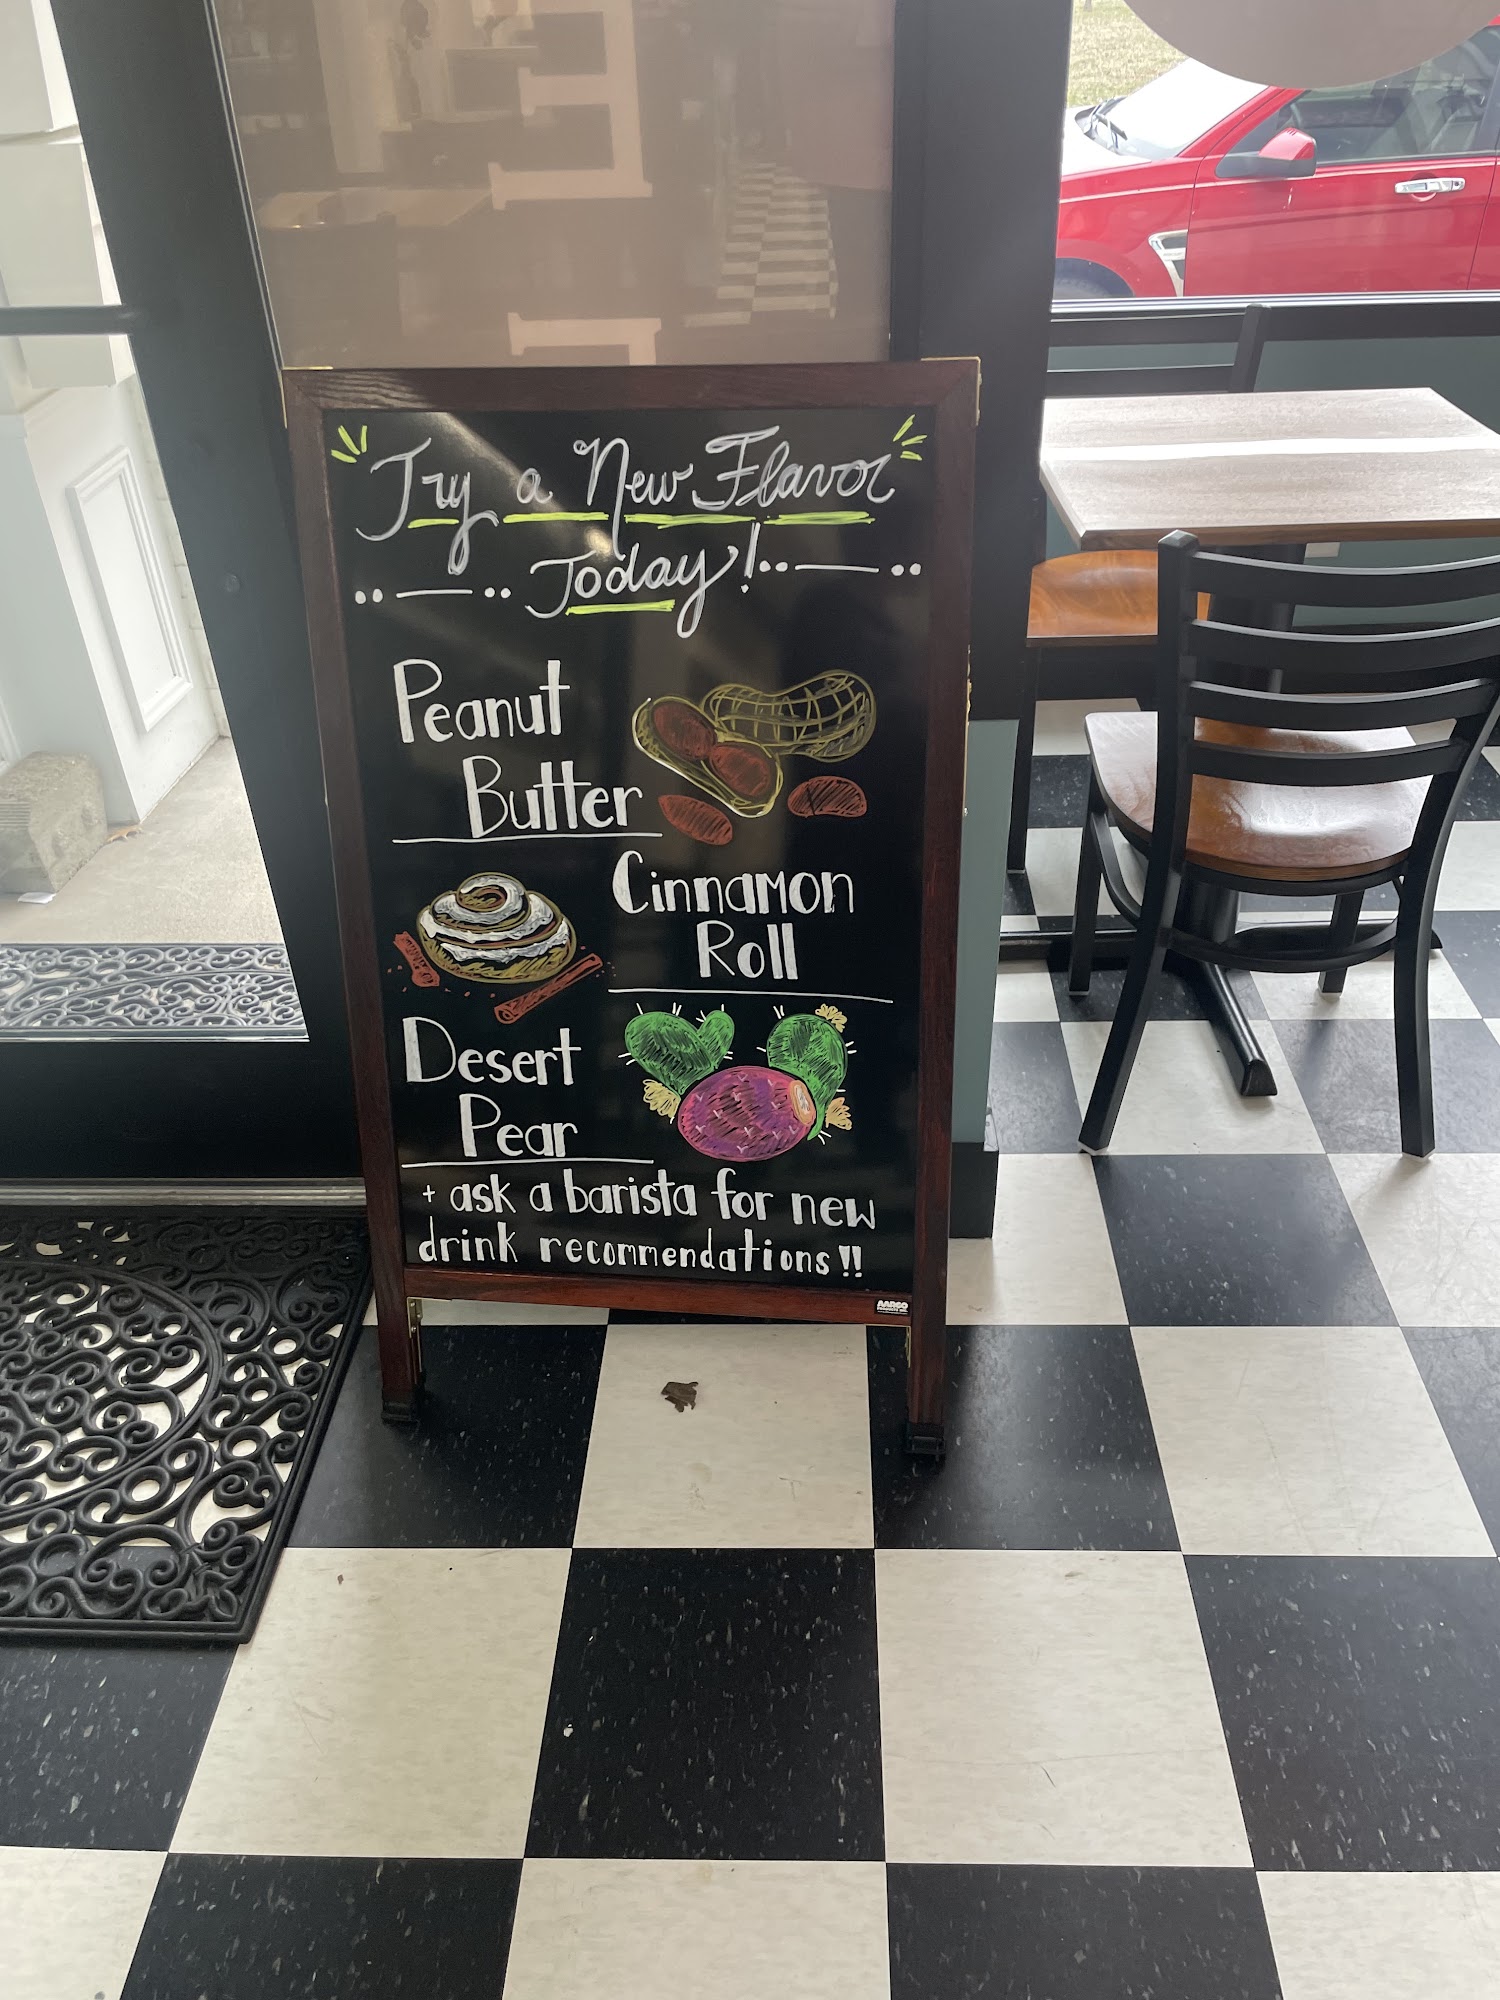 Try a New Flavor
Today!
Peanut
Butter
Cinnamon
Roll
Desert
Pear
+ ask a barista for new
drink recommendations!!
AARCO